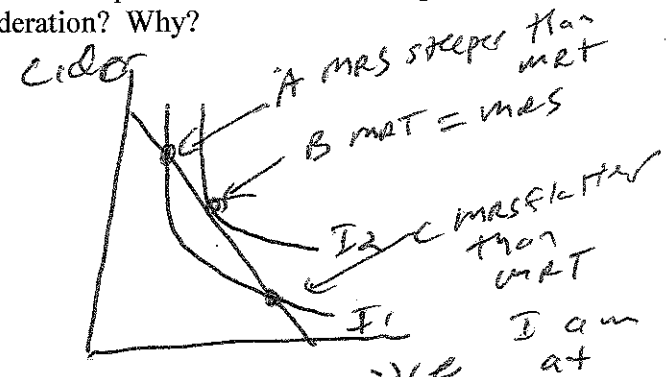 deration? Why?
Cider
A MRS steeper than
MRT
B MRT = MRS
I2
C MRS flatter
than
MRT
I1
I am
at